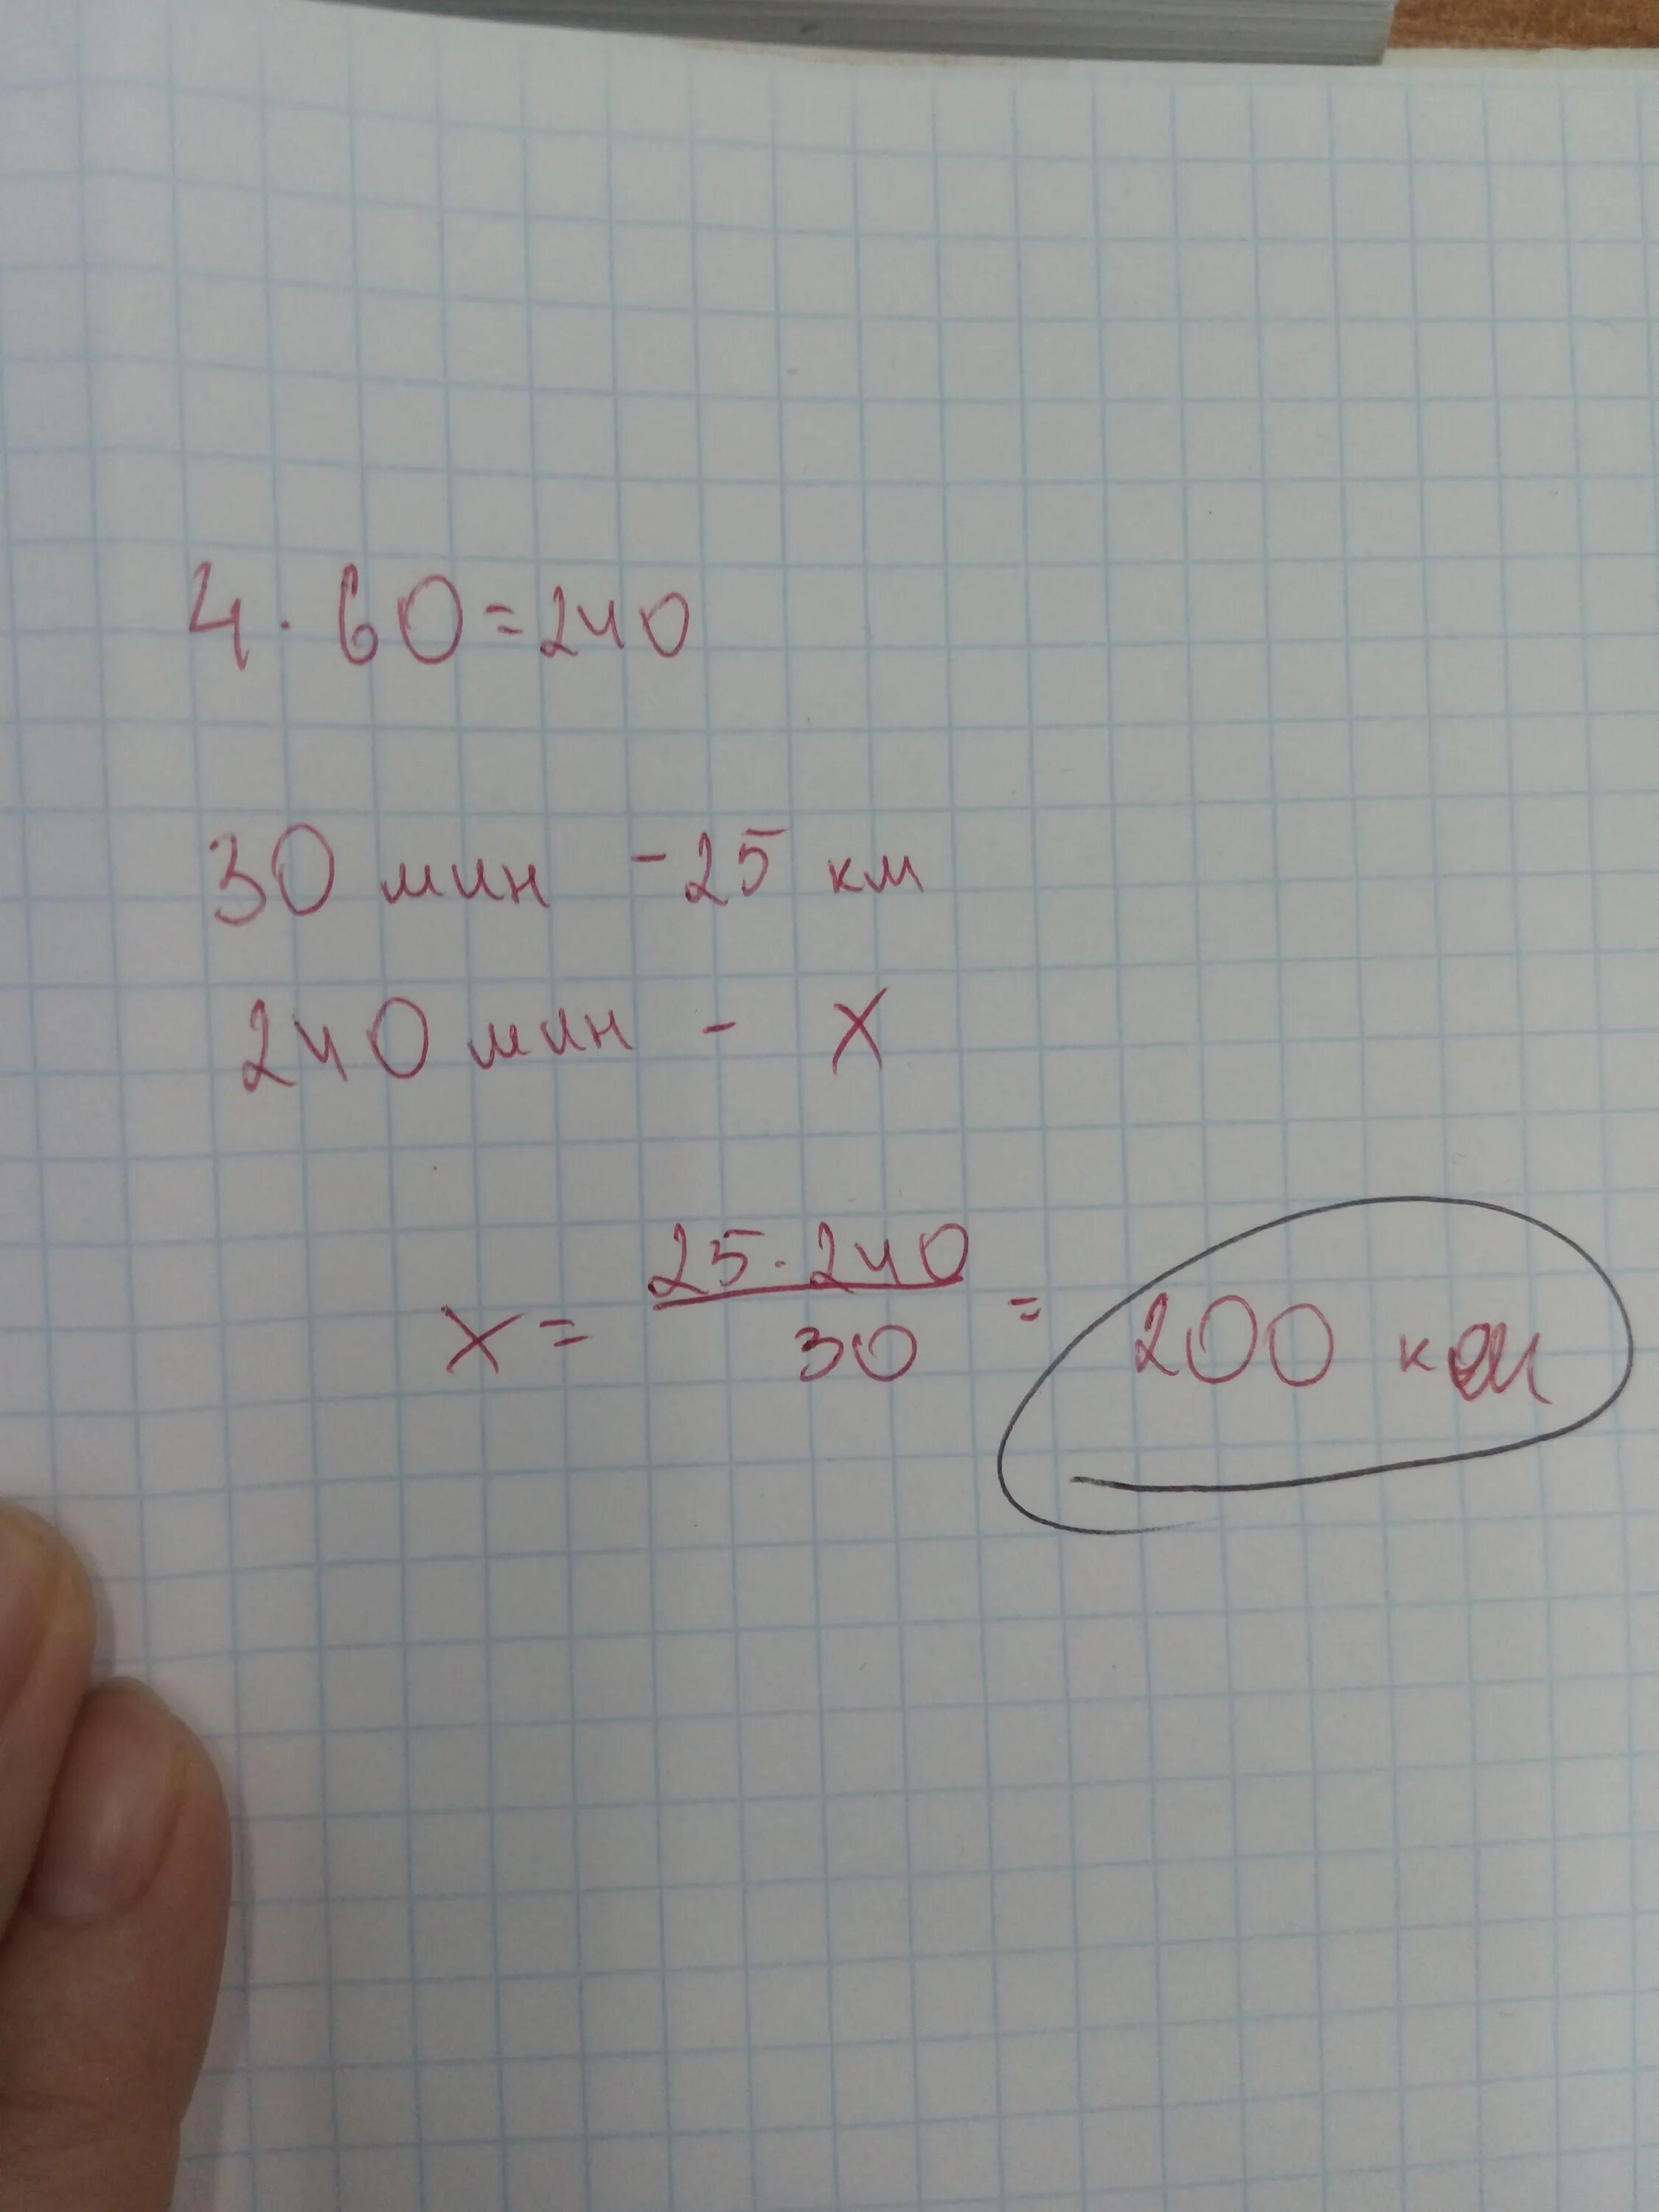 4 · 60 = 240
30 мин - 25 км
240 мин - х
х = 25 · 240 / 30 = 200 км